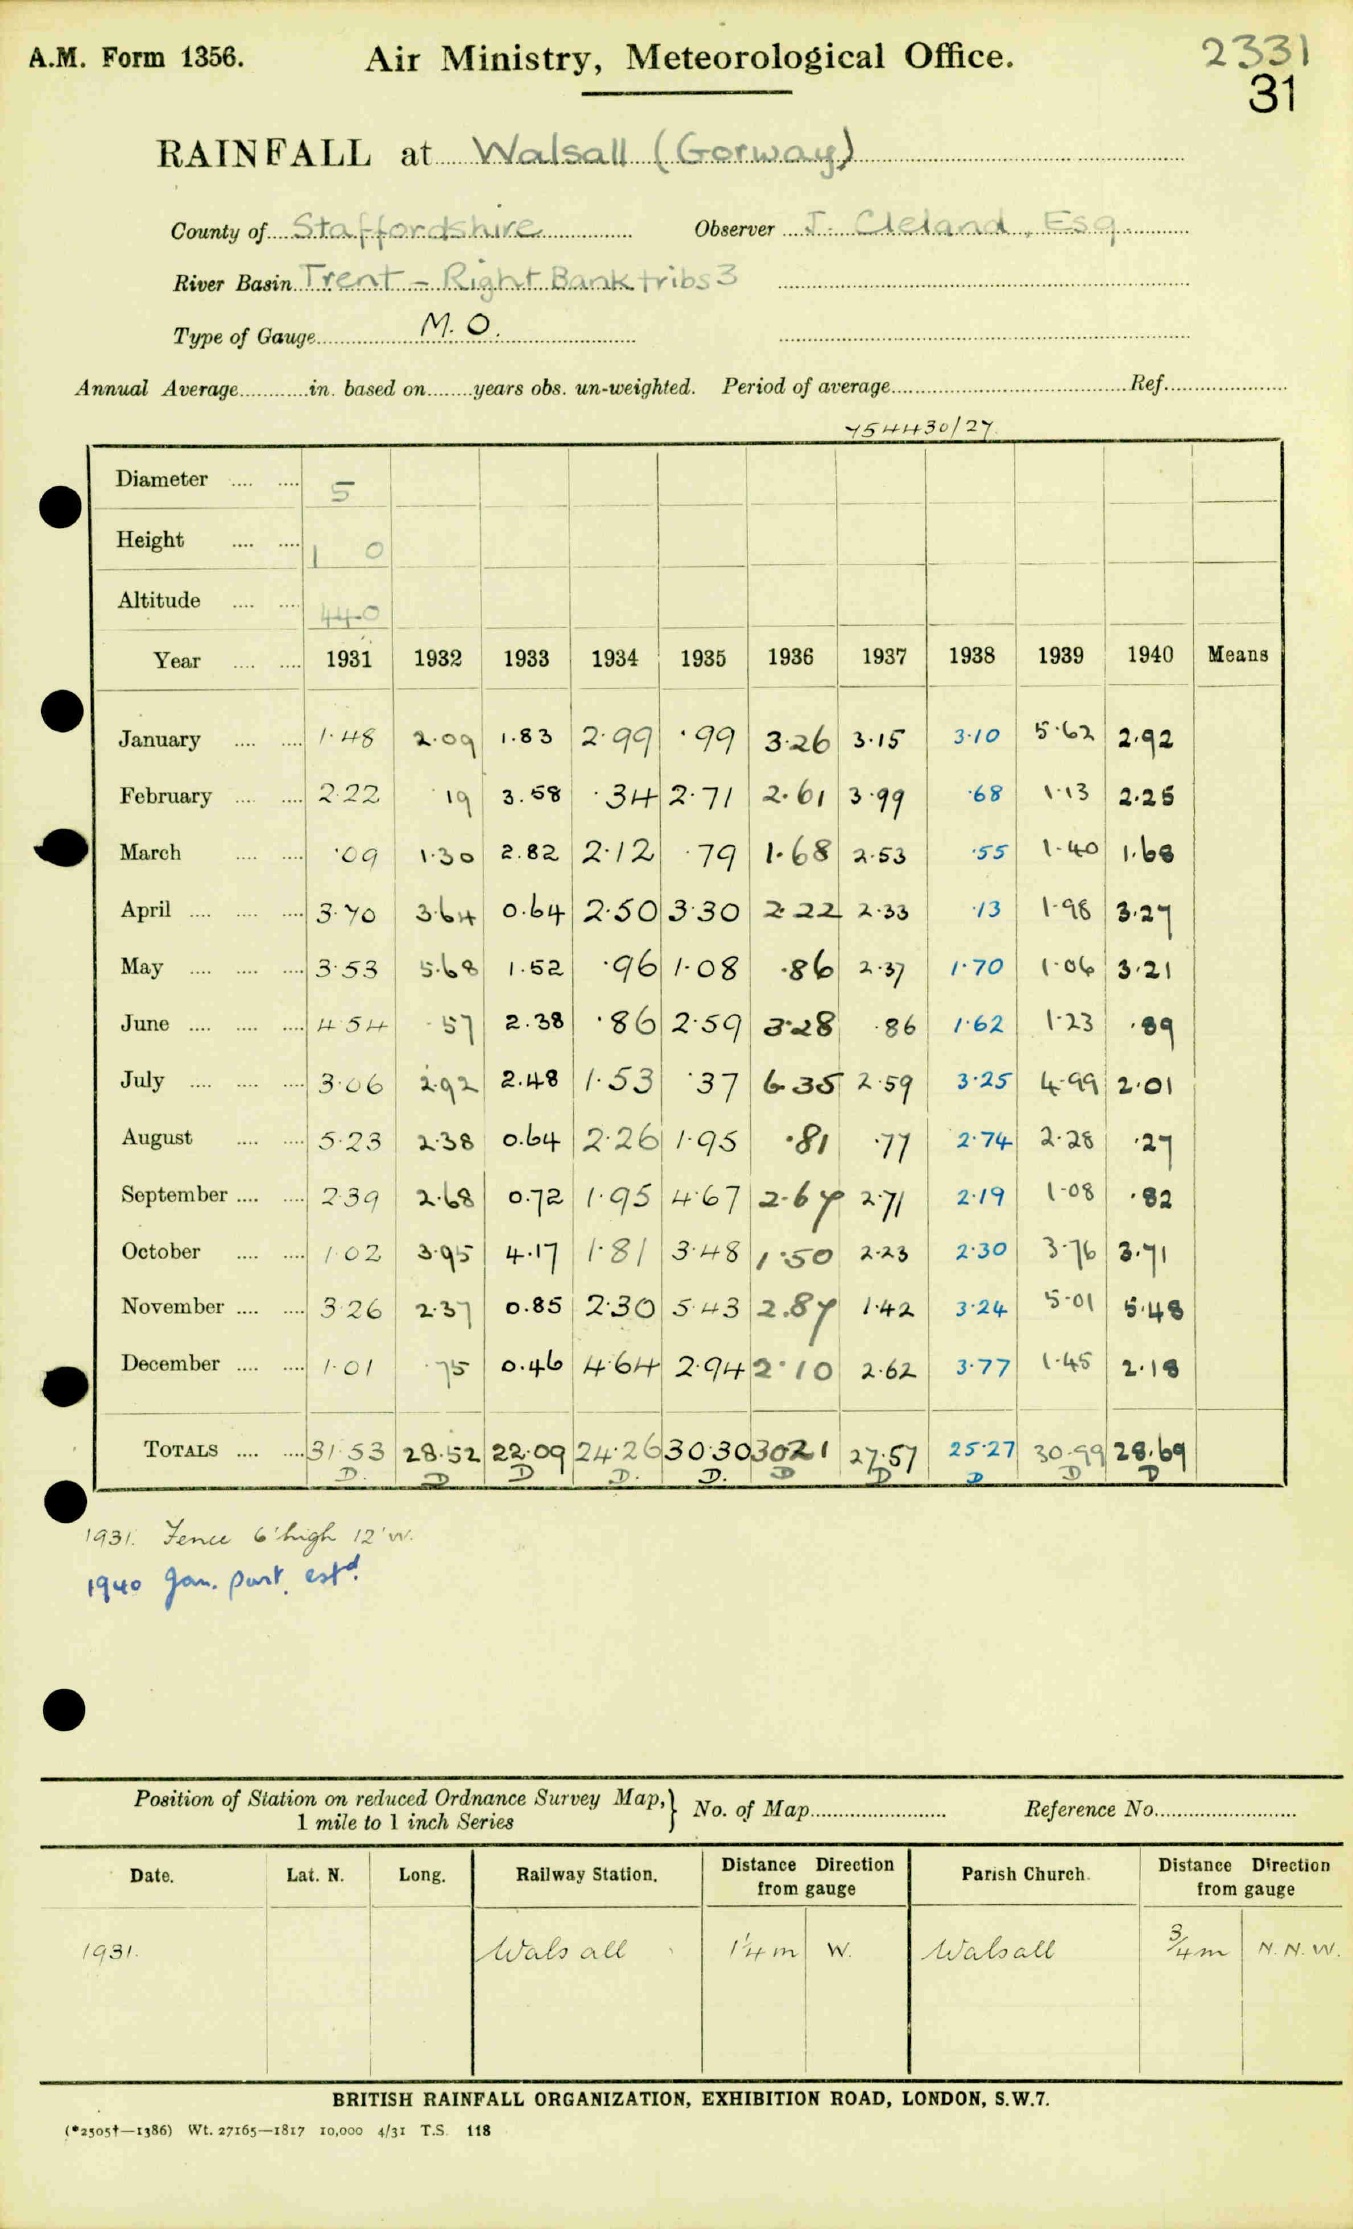 A.M. Form 1356. Air Ministry, Meteorological Office. 2331
31
RAINFALL at Walsall (Gorway)
County of Staffordshire Observer J. Cleland, Esq.
River Basin Trent - Right Bank tribs 3
Type of Gauge M.O.
Annual Average in. based on years obs. un-weighted. Period of average Ref.
754430/27
Diameter 5
Height 1 0
Altitude 440
Year 1931 1932 1933 1934 1935 1936 1937 1938 1939 1940 Means
January 1.48 2.09 1.83 2.99 .99 3.26 3.15 3.10 5.62 2.92
February 2.22 19 3.58 .34 2.71 2.61 3.99 .68 1.13 2.25
March .09 1.30 2.82 2.12 .79 1.68 2.53 .55 1.40 1.68
April 3.70 3.64 0.64 2.50 3.30 2.22 2.33 .13 1.98 3.27
May 3.53 5.68 1.52 .96 1.08 .86 2.37 1.70 1.06 3.21
June 4.54 .57 2.38 .86 2.59 3.28 .86 1.62 1.23 .89
July 3.06 2.92 2.48 1.53 .37 6.35 2.59 3.25 4.99 2.01
August 5.23 2.38 0.64 2.26 1.95 .81 .77 2.74 2.28 .27
September 2.39 2.68 0.72 1.95 4.67 2.67 2.71 2.19 1.08 .82
October 1.02 3.95 4.17 1.81 3.48 1.50 2.23 2.30 3.76 3.71
November 3.26 2.37 0.85 2.30 5.43 2.87 1.42 3.24 5.01 5.48
December 1.01 .75 0.46 4.64 2.94 2.10 2.62 3.77 1.45 2.18
TOTALS 31.53 28.52 22.09 24.26 30.30 30.21 27.57 25.27 30.99 28.69
D. D D D. D. D D D D D
1931. Fence 6' high 12' W.
1940 Jan. part. estd.
Position of Station on reduced Ordnance Survey Map, } No. of Map Reference No.
1 mile to 1 inch Series
Date. Lat. N. Long. Railway Station. Distance Direction from gauge Parish Church. Distance Direction from gauge
1931. Walsall 1¼ m W. Walsall ¾ m N.N.W.
BRITISH RAINFALL ORGANIZATION, EXHIBITION ROAD, LONDON, S.W.7.
(*2505†—1386) Wt. 27165—1817 10,000 4/31 T.S. 118